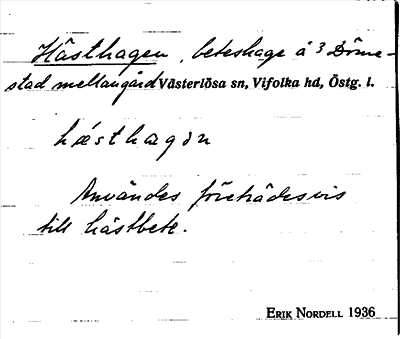 Hästhagen, beteshage å 3 Döme-
stad mellangård Västerlösa sn, Vifolka hd, Östg. l.
hæsthagən
Användes företrädesvis
till hästbete.
ERIK NORDELL 1936